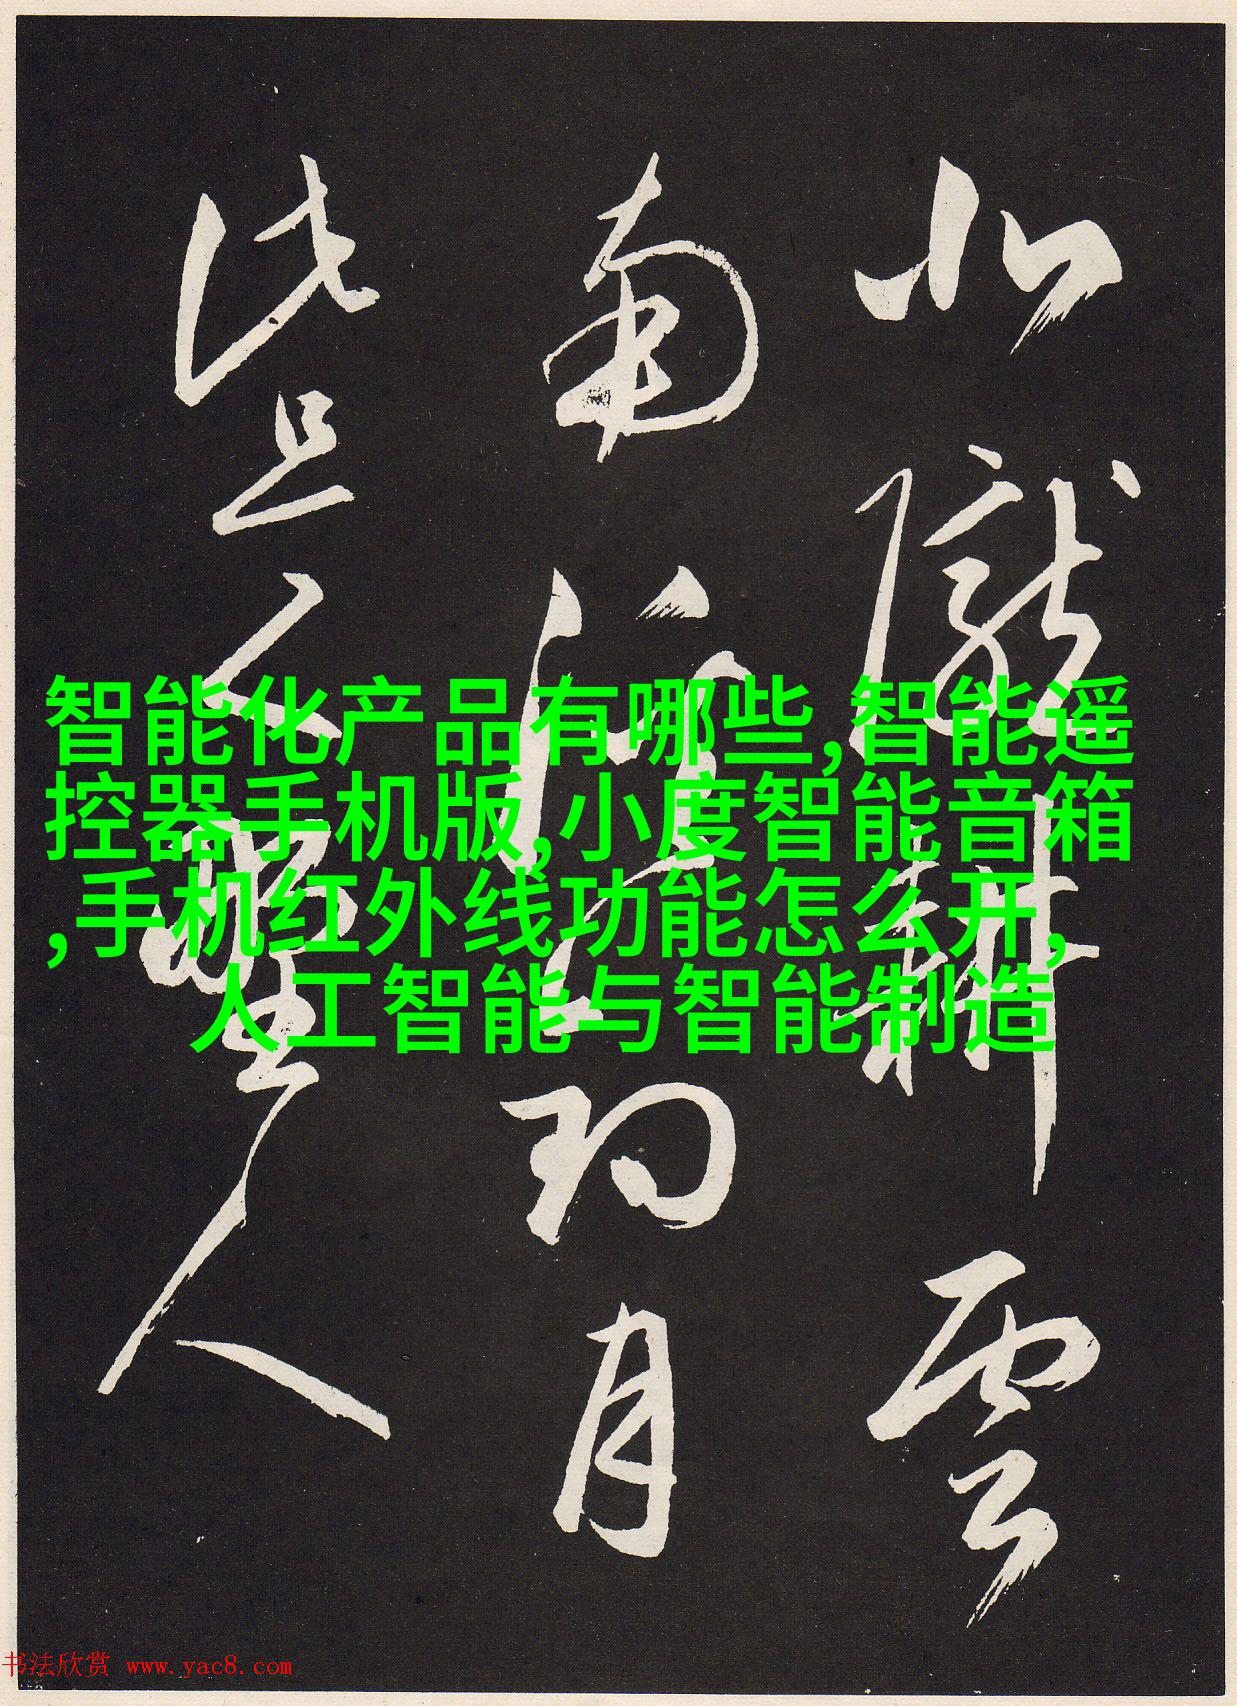 北隴耕雲
南溪釣月
此是野人
智能化产品有哪些,智能遥
控器手机版,小度智能音箱
,手机红外线功能怎么开,
人工智能与智能制造
书法欣赏 www.yac8.com